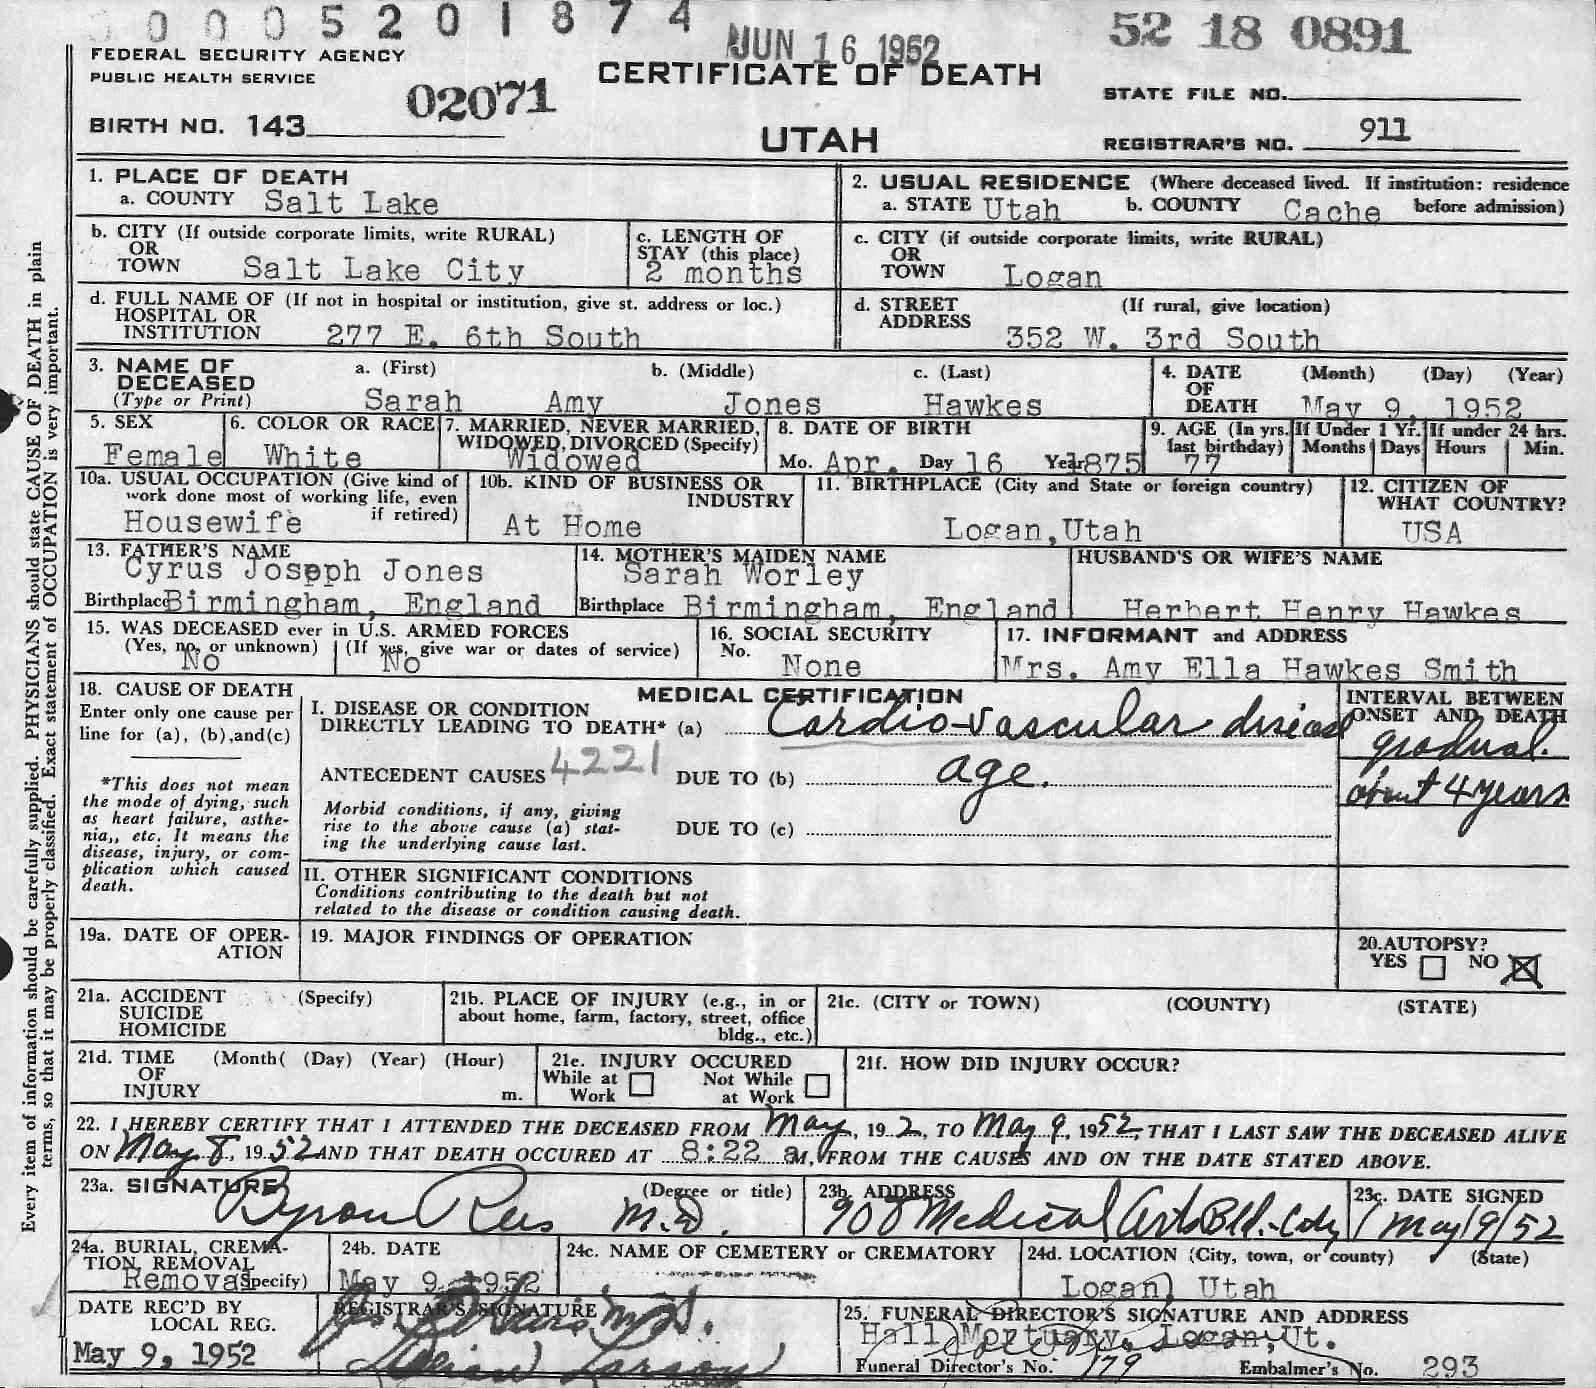 0005201874
JUN 16 1952
52 18 0891
FEDERAL SECURITY AGENCY
PUBLIC HEALTH SERVICE
CERTIFICATE OF DEATH
STATE FILE NO.
02071
BIRTH NO. 143
UTAH
REGISTRAR'S NO. 911
Every item of information should be carefully supplied. PHYSICIANS should state CAUSE OF DEATH in plain
terms, so that it may be properly classified. Exact statement of OCCUPATION is very important.
1. PLACE OF DEATH
a. COUNTY Salt Lake
2. USUAL RESIDENCE (Where deceased lived. If institution: residence
a. STATE Utah b. COUNTY Cache before admission)
b. CITY (If outside corporate limits, write RURAL)
OR
TOWN Salt Lake City
c. LENGTH OF
STAY (this place)
2 months
c. CITY (if outside corporate limits, write RURAL)
OR
TOWN Logan
d. FULL NAME OF (If not in hospital or institution, give st. address or loc.)
HOSPITAL OR
INSTITUTION 277 E. 6th South
d. STREET (If rural, give location)
ADDRESS 352 W. 3rd South
3. NAME OF a. (First) b. (Middle) c. (Last)
DECEASED
(Type or Print) Sarah Amy Jones Hawkes
4. DATE (Month) (Day) (Year)
OF
DEATH May 9, 1952
5. SEX
Female
6. COLOR OR RACE
White
7. MARRIED, NEVER MARRIED,
WIDOWED, DIVORCED (Specify)
Widowed
8. DATE OF BIRTH
Mo. Apr. Day 16 Year 1875
9. AGE (In yrs.
last birthday)
77
If Under 1 Yr.
Months Days
If under 24 hrs.
Hours Min.
10a. USUAL OCCUPATION (Give kind of
work done most of working life, even
if retired)
Housewife
10b. KIND OF BUSINESS OR
INDUSTRY
At Home
11. BIRTHPLACE (City and State or foreign country)
Logan,Utah
12. CITIZEN OF
WHAT COUNTRY?
USA
13. FATHER'S NAME
Cyrus Joseph Jones
Birthplace Birmingham, England
14. MOTHER'S MAIDEN NAME
Sarah Worley
Birthplace Birmingham, England
HUSBAND'S OR WIFE'S NAME
Herbert Henry Hawkes
15. WAS DECEASED ever in U.S. ARMED FORCES
(Yes, no, or unknown) (If yes, give war or dates of service)
No No
16. SOCIAL SECURITY
No.
None
17. INFORMANT and ADDRESS
Mrs. Amy Ella Hawkes Smith
18. CAUSE OF DEATH
Enter only one cause per
line for (a), (b),and(c)
*This does not mean
the mode of dying, such
as heart failure, asthe-
nia,, etc. It means the
disease, injury, or com-
plication which caused
death.
MEDICAL CERTIFICATION
I. DISEASE OR CONDITION
DIRECTLY LEADING TO DEATH* (a) Cardio-vascular disease
ANTECEDENT CAUSES 4221 DUE TO (b) age.
Morbid conditions, if any, giving
rise to the above cause (a) stat-
ing the underlying cause last.
DUE TO (c)
INTERVAL BETWEEN
ONSET AND DEATH
gradual.
about 4 years
II. OTHER SIGNIFICANT CONDITIONS
Conditions contributing to the death but not
related to the disease or condition causing death.
19a. DATE OF OPER-
ATION
19. MAJOR FINDINGS OF OPERATION
20.AUTOPSY?
YES NO
21a. ACCIDENT (Specify)
SUICIDE
HOMICIDE
21b. PLACE OF INJURY (e.g., in or
about home, farm, factory, street, office
bldg., etc.)
21c. (CITY or TOWN) (COUNTY) (STATE)
21d. TIME (Month( (Day) (Year) (Hour)
OF
INJURY m.
21e. INJURY OCCURED
While at Work
Not While at Work
21f. HOW DID INJURY OCCUR?
22. I HEREBY CERTIFY THAT I ATTENDED THE DECEASED FROM May, 19 2, TO May 9, 1952, THAT I LAST SAW THE DECEASED ALIVE
ON May 8, 19 52 AND THAT DEATH OCCURED AT 8:22 a M, FROM THE CAUSES AND ON THE DATE STATED ABOVE.
23a. SIGNATURE (Degree or title)
Byron Rees M.D.
23b. ADDRESS
908 Medical Arts Bld.-City
23c. DATE SIGNED
May/9/52
24a. BURIAL, CREMA-
TION, REMOVAL
Removal (Specify)
24b. DATE
May 9, 1952
24c. NAME OF CEMETERY or CREMATORY
24d. LOCATION (City, town, or county) (State)
Logan, Utah
DATE REC'D BY
LOCAL REG.
May 9, 1952
REGISTRAR'S SIGNATURE
M.D.
Larson
25. FUNERAL DIRECTOR'S SIGNATURE AND ADDRESS
Hall Mortuary, Logan, Ut.
Funeral Director's No. 179 Embalmer's No. 293